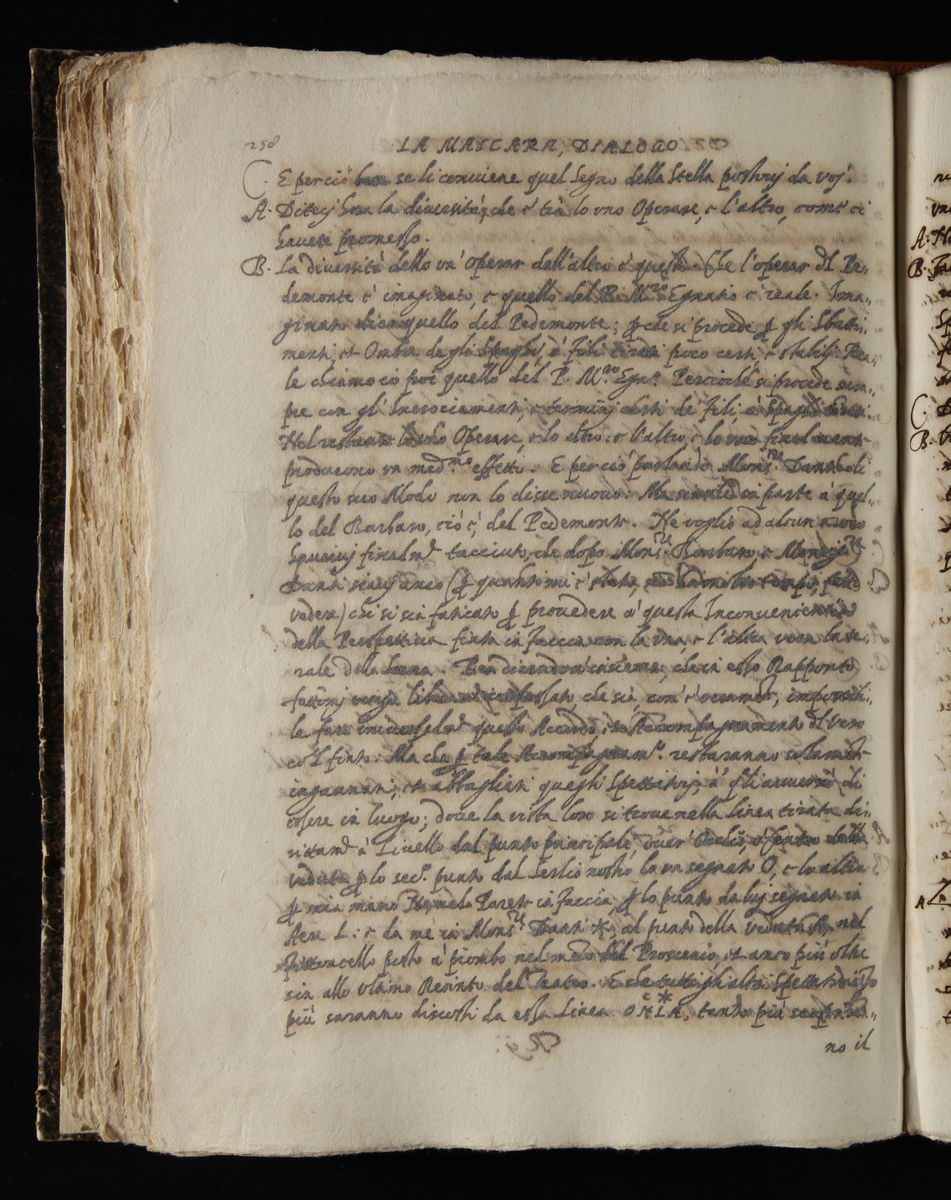 258
LA MASCARA, DIALOGO
C. E perciò ben se li conviene quel Segno della Stella postovj da voj.
A. Ditecj hora la diversità; che è trà lo uno Operare, e l'altro, come ci
havete promesso.
B. La diversità dello un' operar dall'altro è questa. Che l'operar del Pe-
demonte è imaginato, e quello del P. M.ro Egnatio è reale. Ima-
ginato dico quello del Pedemonte; ꝑche si procede ꝑ gli Sbatti-
menti, et Ombre degli Spaghi, ò fili tirati poco certi, e stabilj. Rea-
le chiamo io poi quello del P. M.ro Egn.o Perciochè si procede sem-
pre con gli Incrociamenti, e terminj certi de' fili, e Spaghi
Nel restante lo uno Operare, e lo altro: e l'altro, e lo uno finalmente
producono un med.mo effetto. E perciò parlando Mons.re Danti
questo suo Modo non lo disse nuovo: Ma simile in parte à quel-
lo del Barbaro, ciò è, del Pedemonte. Ne voglio ad alcun modo
havervj finalm.te tacciuto, che dopo Mons.re Barbaro, e Monsig.re
Danti senza anco (ꝑ quanto mi è stato,
vedere) chi si sia faticato ꝑ provedere à questa Inconvenientia
della Perspettiva finta in faccia con la una, e l'altra vera late-
rale della Scena. Ben dicendovi insieme, che in esso Rapporto
che sia, com' è veramente, impossibi-
le fare questo Accordo, et Accompagnamento del vero
co 'l finto. Ma che ꝑ tale Accompagnam.to restaranno solamente
ingannati, et abbagliati queglj Spettatorj, à' quali avverrà di
essere in luogo; dove la vista loro si trove nella linea tirata di-
rittam.te à Livello dal punto principale over' Occhio, ò Centro della
veduta ꝑ lo sec.o punto dal Serlio nostro la un segnato O, e lo altro
ꝑ mia mano N, nelo Parete in faccia, ꝑ lo punto da luj segnato in
Aere L: e da me in Mons.re Danti *, al punto della veduta A, nel
posto à piombo nel mezo del Proscenio, et anco più oltre
sin allo ultimo Recinto del Teatro. E che tutti gli altri Spettatorj, quanto
più saranno discosti da essa Linea ONLA, tanto più
no il